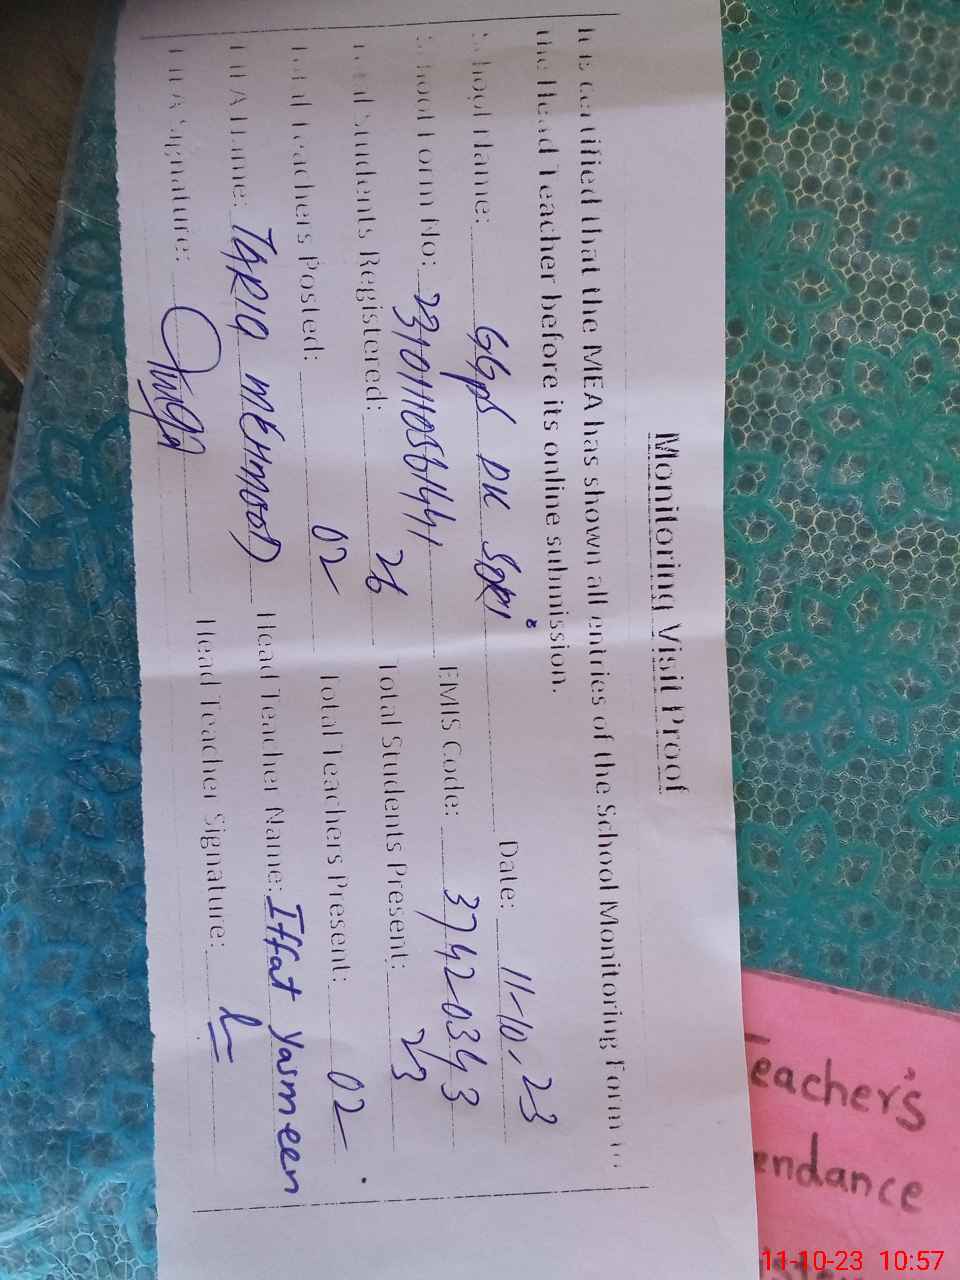 Monitoring Visit Proof
It is certified that the MEA has shown all entries of the School Monitoring Form to
the Head Teacher before its online submission.
School Name: GGPS DK Date: 11-10-23
School Form No: EMIS Code: 37420343
Total Students Registered: 26 Total Students Present: 23
Total Teachers Posted: 02 Total Teachers Present: 02
MEA Name: TARIQ MEHMOOD Head Teacher Name: Iffat Yasmeen
MEA Signature: Head Teacher Signature:
Teacher's
endance
11-10-23 10:57